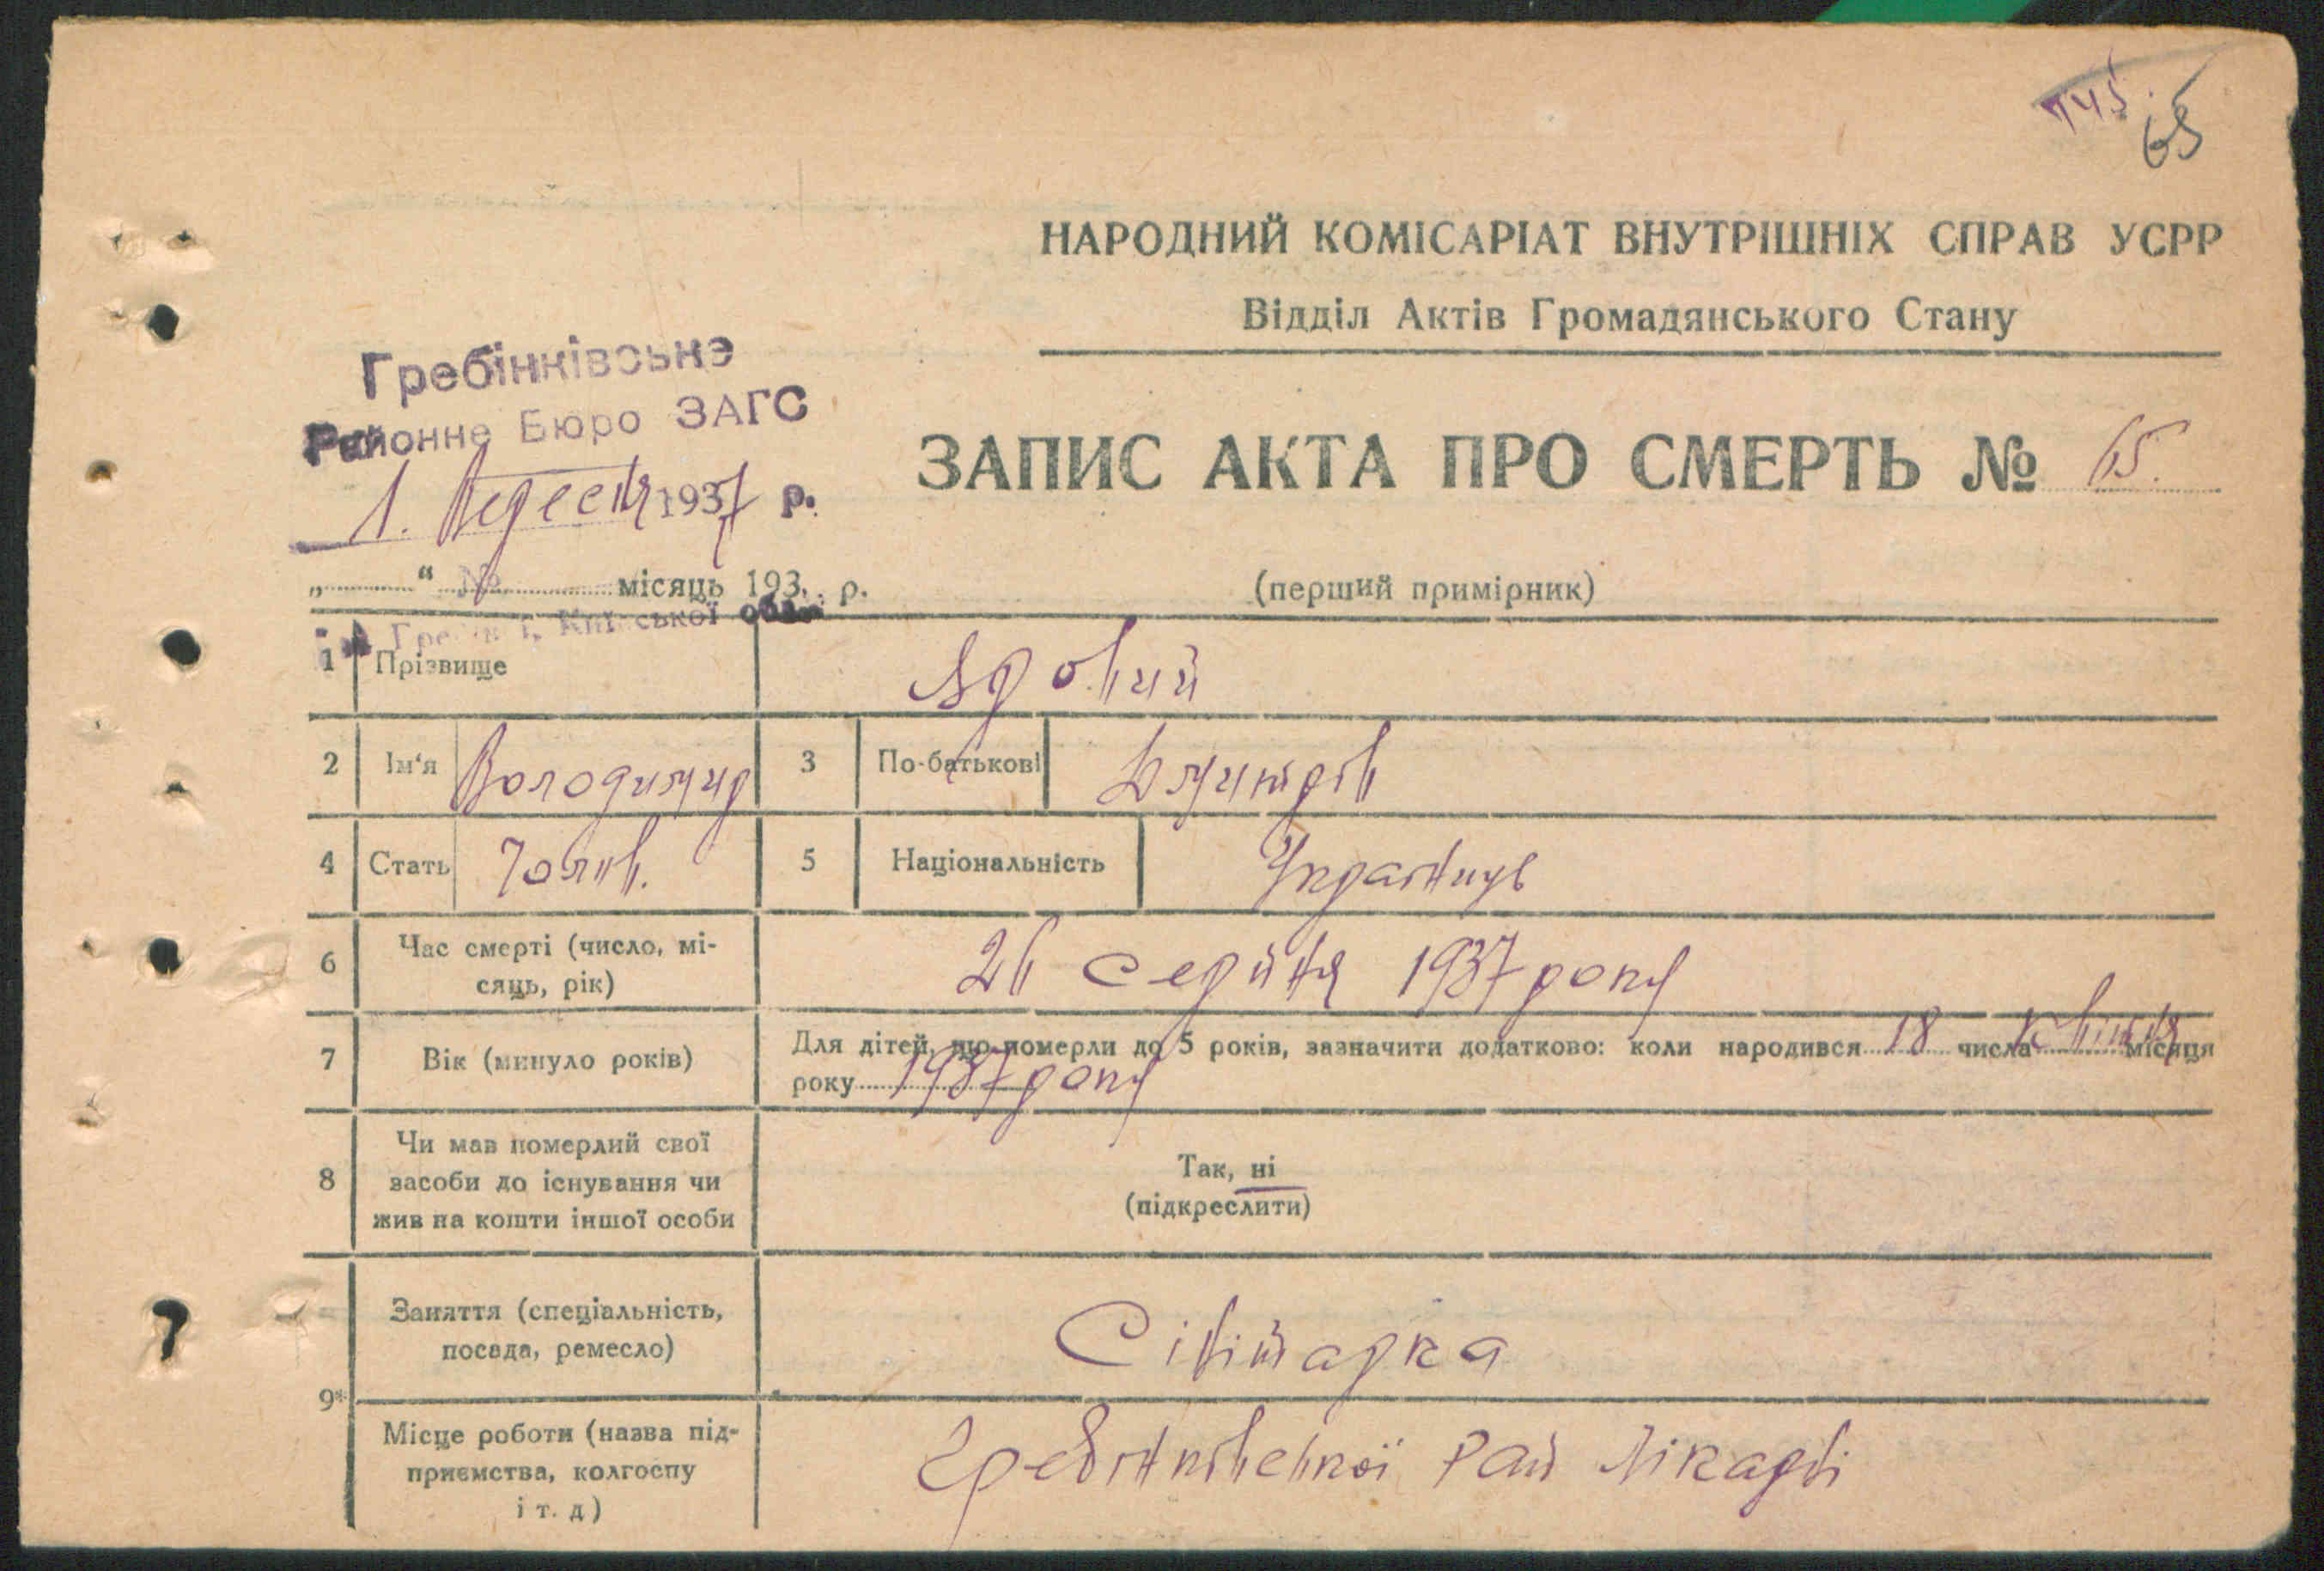 745.
65
НАРОДНИЙ КОМІСАРІАТ ВНУТРІШНІХ СПРАВ УСРР
Відділ Актів Громадянського Стану
Гребінківське
Районне Бюро ЗАГС
1. Вересня 1937 р.
ЗАПИС АКТА ПРО СМЕРТЬ № 65.
„ “ № місяць 193 р.
(перший примірник)
Київської обл.
1 Прізвище Ядовий
2 Ім‘я Володимир 3 По-батькові Дмитрів
4 Стать Чолов. 5 Національність Українець
6 Час смерті (число, мі-
сяць, рік) 26 серпня 1937 року
7 Вік (минуло років) Для дітей, що померли до 5 років, зазначити додатково: коли народився 18 числа квітня місяця
року 1937 року
8 Чи мав померлий свої
засоби до існування чи
жив на кошти іншої особи
Так, ні
(підкреслити)
9* Заняття (спеціальність,
посада, ремесло)
Місце роботи (назва під-
приємства, колгоспу
і т. д)
Гребінківської рай лікарні